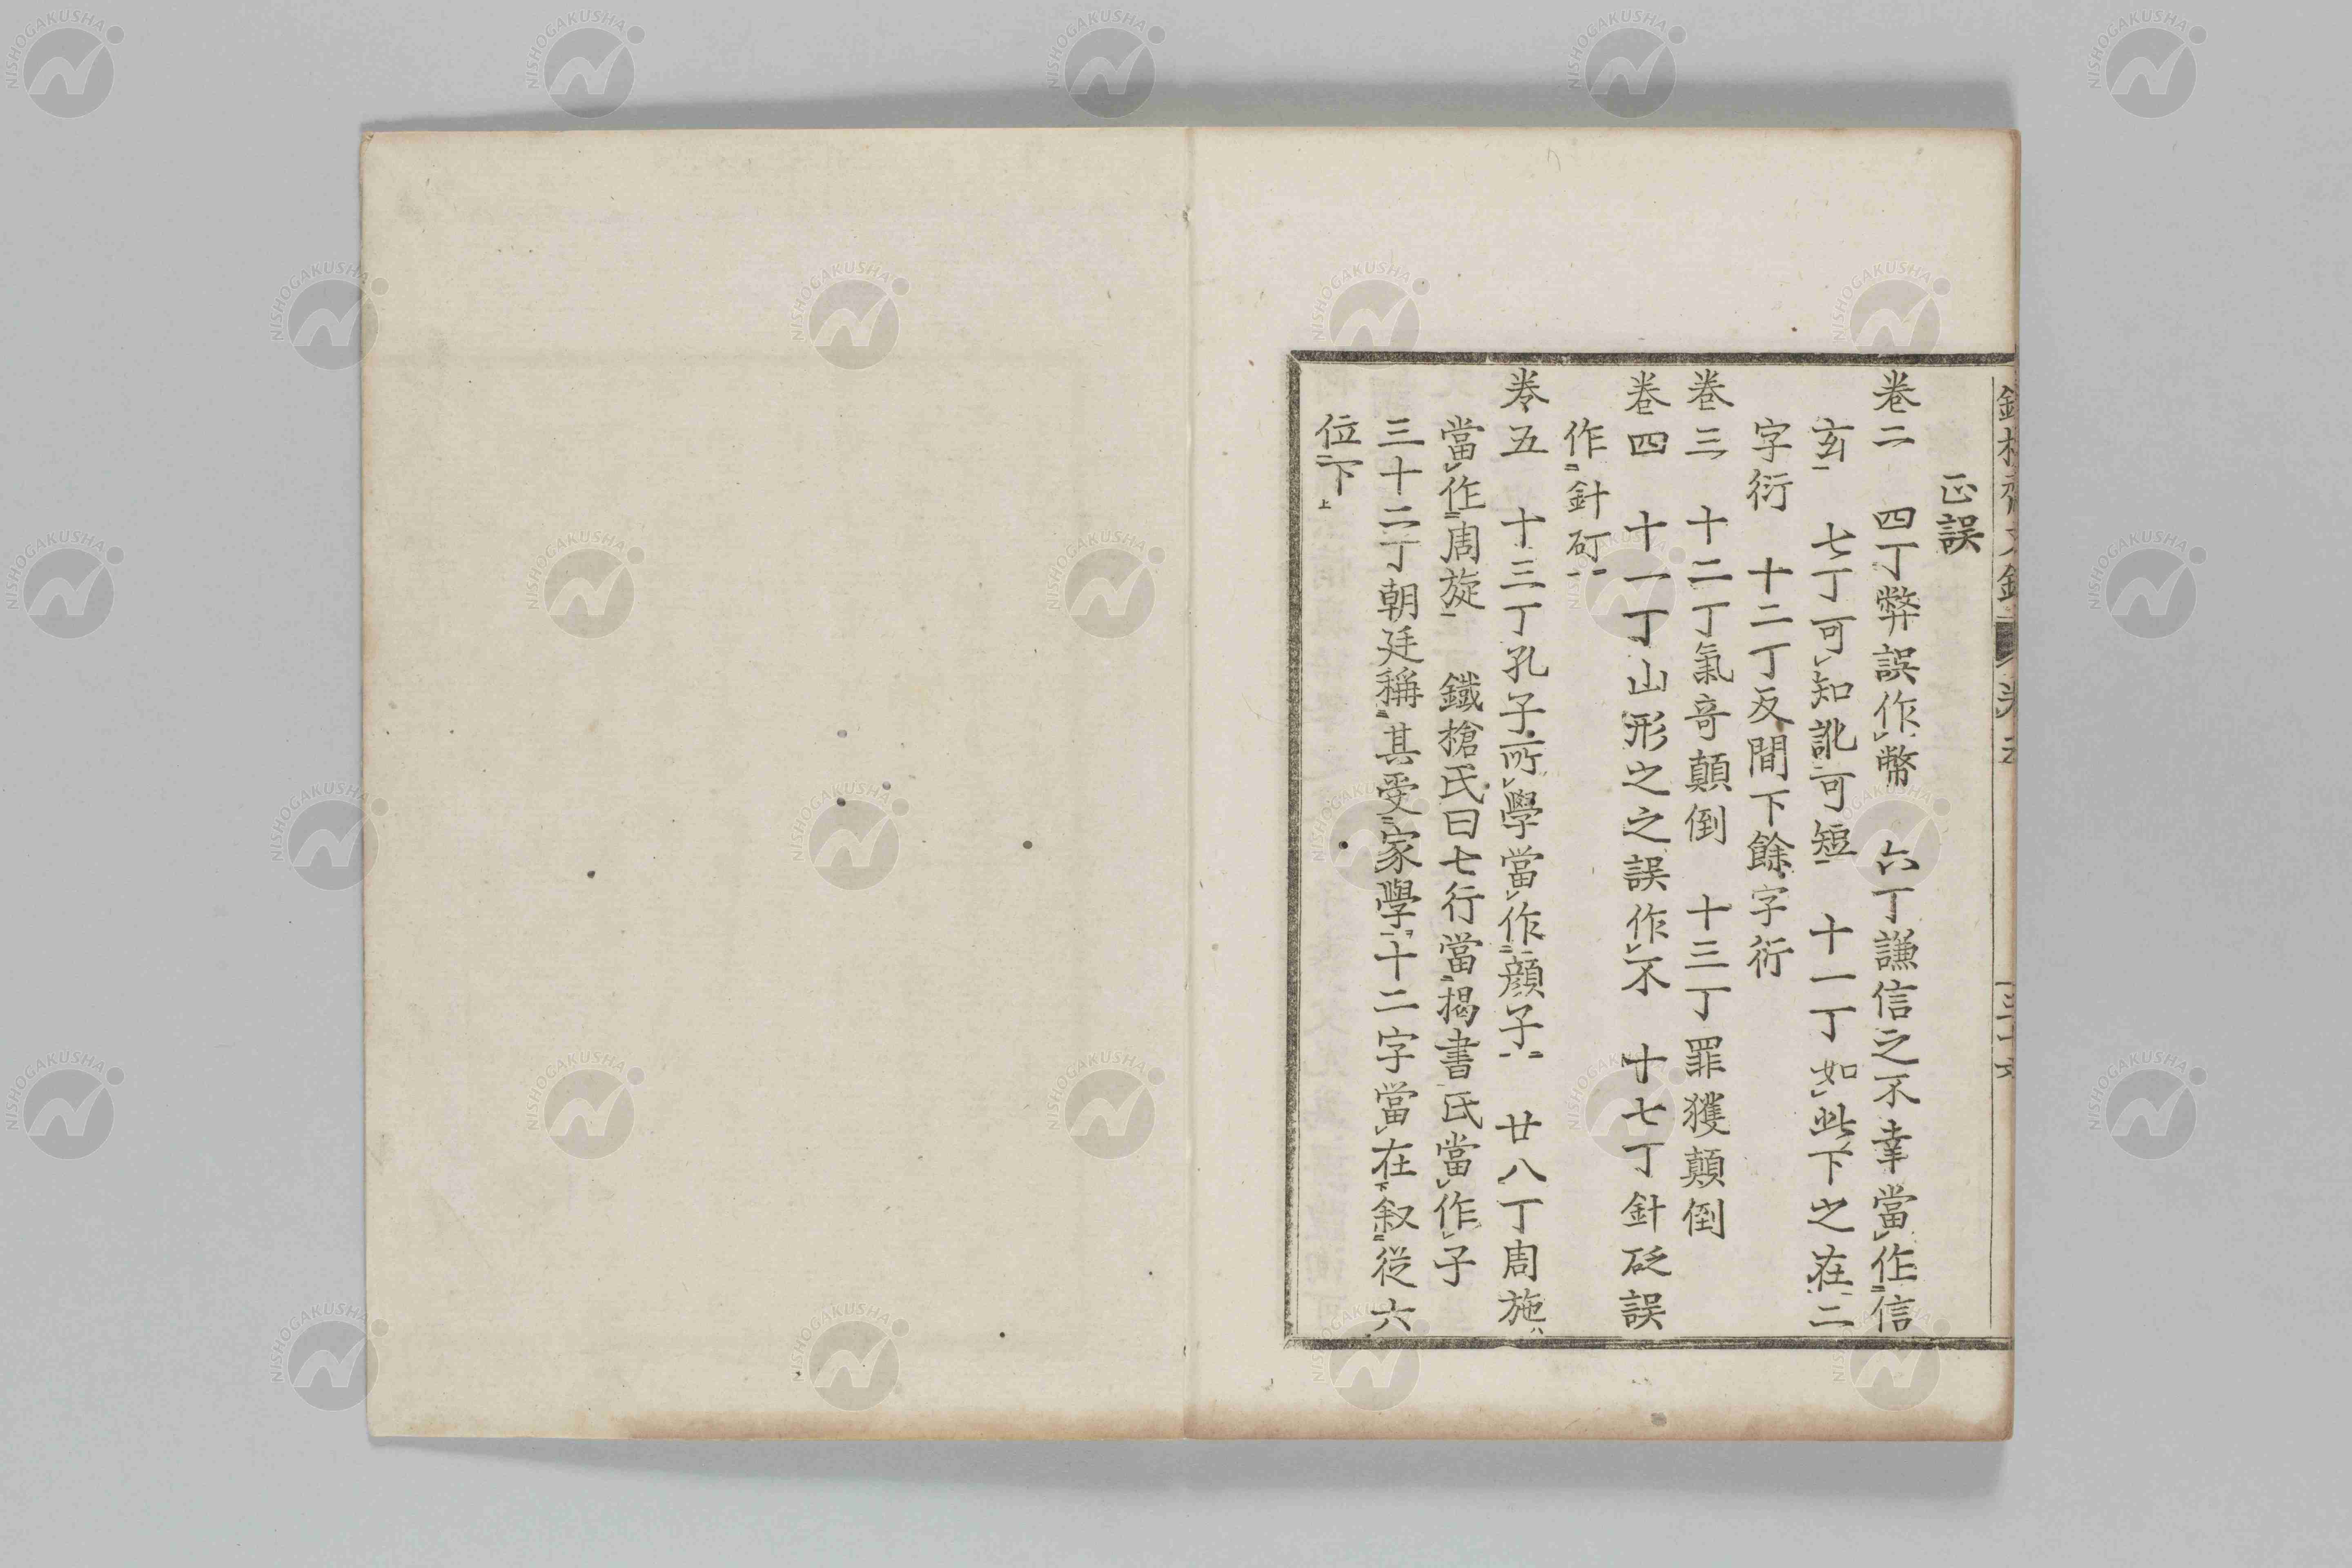 正誤
卷二　四丁弊誤作幣　六丁謙信之不幸當作信
玄　七丁可知訛可短　十一丁如此下之在二
字衍　十二丁反間下餘字衍
卷三　十二丁氣奇顛倒　十三丁罪獲顛倒
卷四　十一丁山形之之誤作不　十七丁針砭誤
作針矴
卷五　十三丁孔子所學當作顔子　廿八丁周施
當作周旋　鐵槍氏曰七行當揭書氏當作子
三十二丁朝廷稱其受家學十二字當在叙從六
位下上
NISHOGAKUSHA